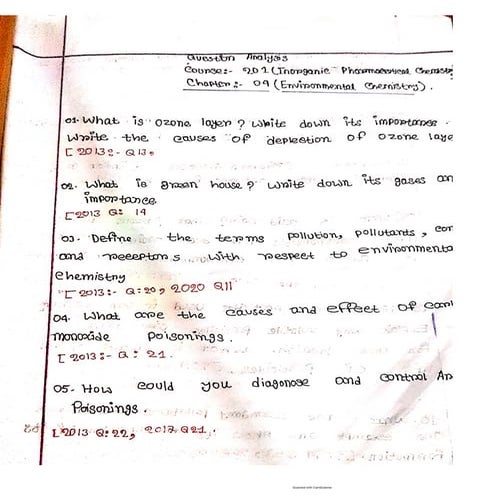 Question Analysis
Course:- 201 (Inorganic Pharmaceutical Chemistry
Chapter:- 09 (Environmental Chemistry).
01. What is ozone layer? Write down its importance.
Write the causes of depletion of ozone laye
[2013:- Q13.
02. What is green house? Write down its gases an
importance
[2013 Q: 14
03. Define the terms pollution, pollutants, con
and receptors with respect to environmenta
chemistry
[2013:- Q:20, 2020 Q11
04. What are the causes and effect of carb
monoxide poisonings.
[2013:- Q: 21.
05- How could you diagonose and control Ar
Poisonings.
[2013 Q:22, 2017 Q21.